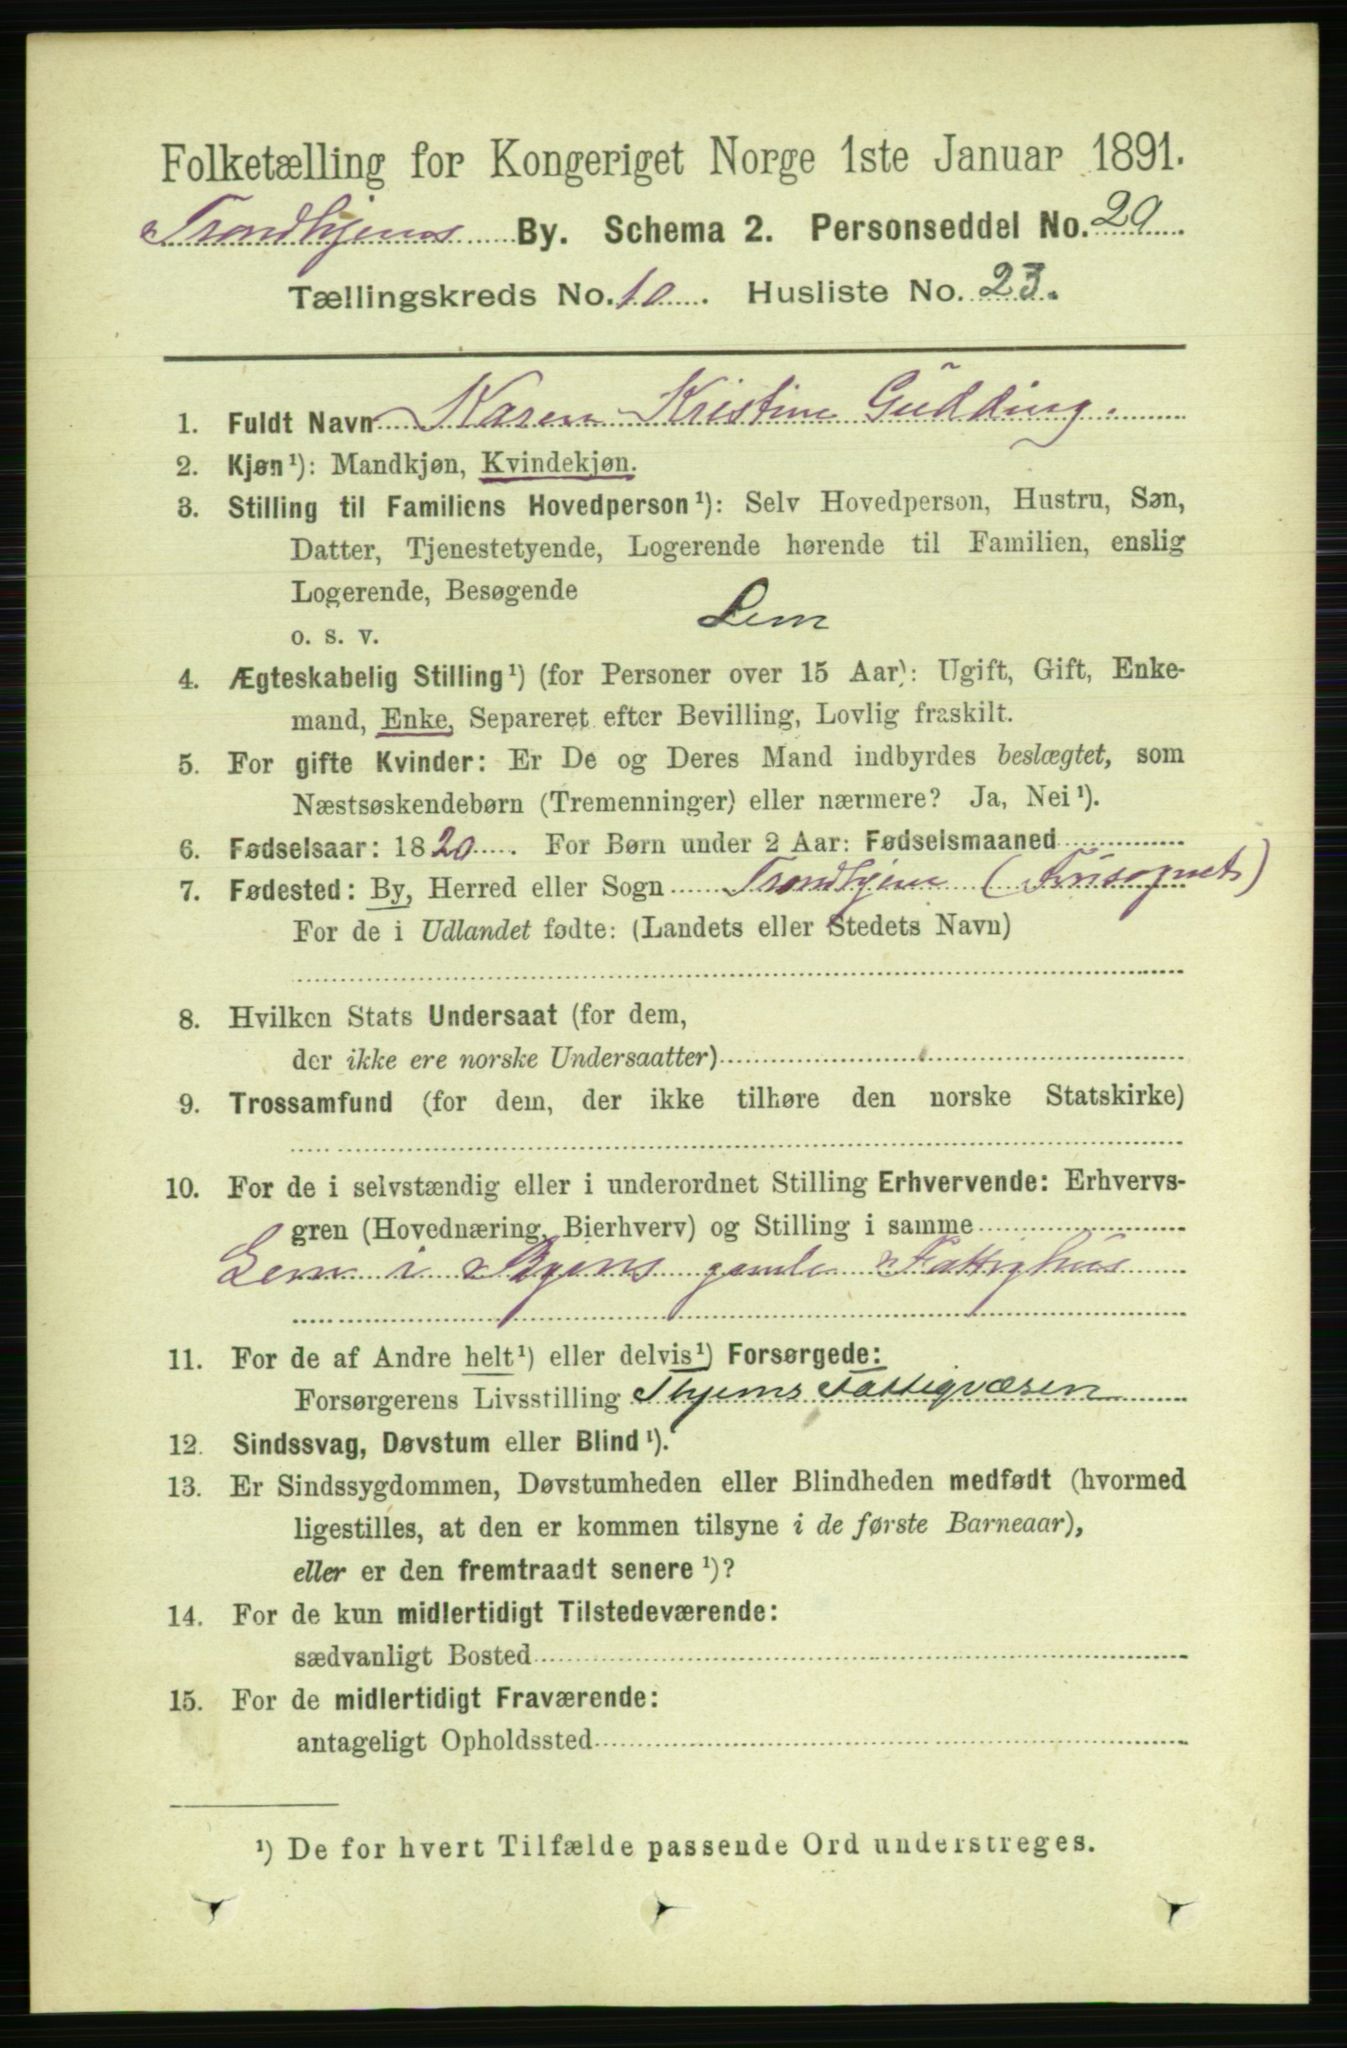 Folketælling for Kongeriget Norge 1ste Januar 1891.
Trondhjems By. Schema 2. Personseddel No. 29
Tællingskreds No. 10. Husliste No. 23.
1. Fuldt Navn Karen Kristine Gudding.
2. Kjøn¹): Mandkjøn, Kvindekjøn.
3. Stilling til Familiens Hovedperson¹): Selv Hovedperson, Hustru, Søn,
Datter, Tjenestetyende, Logerende hørende til Familien, enslig
Logerende, Besøgende
o. s. v. Lem
4. Ægteskabelig Stilling¹) (for Personer over 15 Aar): Ugift, Gift, Enke-
mand, Enke, Separeret efter Bevilling, Lovlig fraskilt.
5. For gifte Kvinder: Er De og Deres Mand indbyrdes beslægtet, som
Næstsøskendebørn (Tremenninger) eller nærmere? Ja, Nei¹).
6. Fødselsaar: 1820. For Børn under 2 Aar: Fødselsmaaned
7. Fødested: By, Herred eller Sogn Trondhjem (Frusognet)
For de i Udlandet fødte: (Landets eller Stedets Navn)
8. Hvilken Stats Undersaat (for dem,
der ikke ere norske Undersaatter)
9. Trossamfund (for dem, der ikke tilhøre den norske Statskirke)
10. For de i selvstændig eller i underordnet Stilling Erhvervende: Erhvervs-
gren (Hovednæring, Bierhverv) og Stilling i samme
Lem i Byens gamle Fattighus
11. For de af Andre helt¹) eller delvis¹) Forsørgede:
Forsørgerens Livsstilling Thjems Fattigvæsen
12. Sindssvag, Døvstum eller Blind¹).
13. Er Sindssygdommen, Døvstumheden eller Blindheden medfødt (hvormed
ligestilles, at den er kommen tilsyne i de første Barneaar),
eller er den fremtraadt senere¹)?
14. For de kun midlertidigt Tilstedeværende:
sædvanligt Bosted
15. For de midlertidigt Fraværende:
antageligt Opholdssted
¹) De for hvert Tilfælde passende Ord understreges.